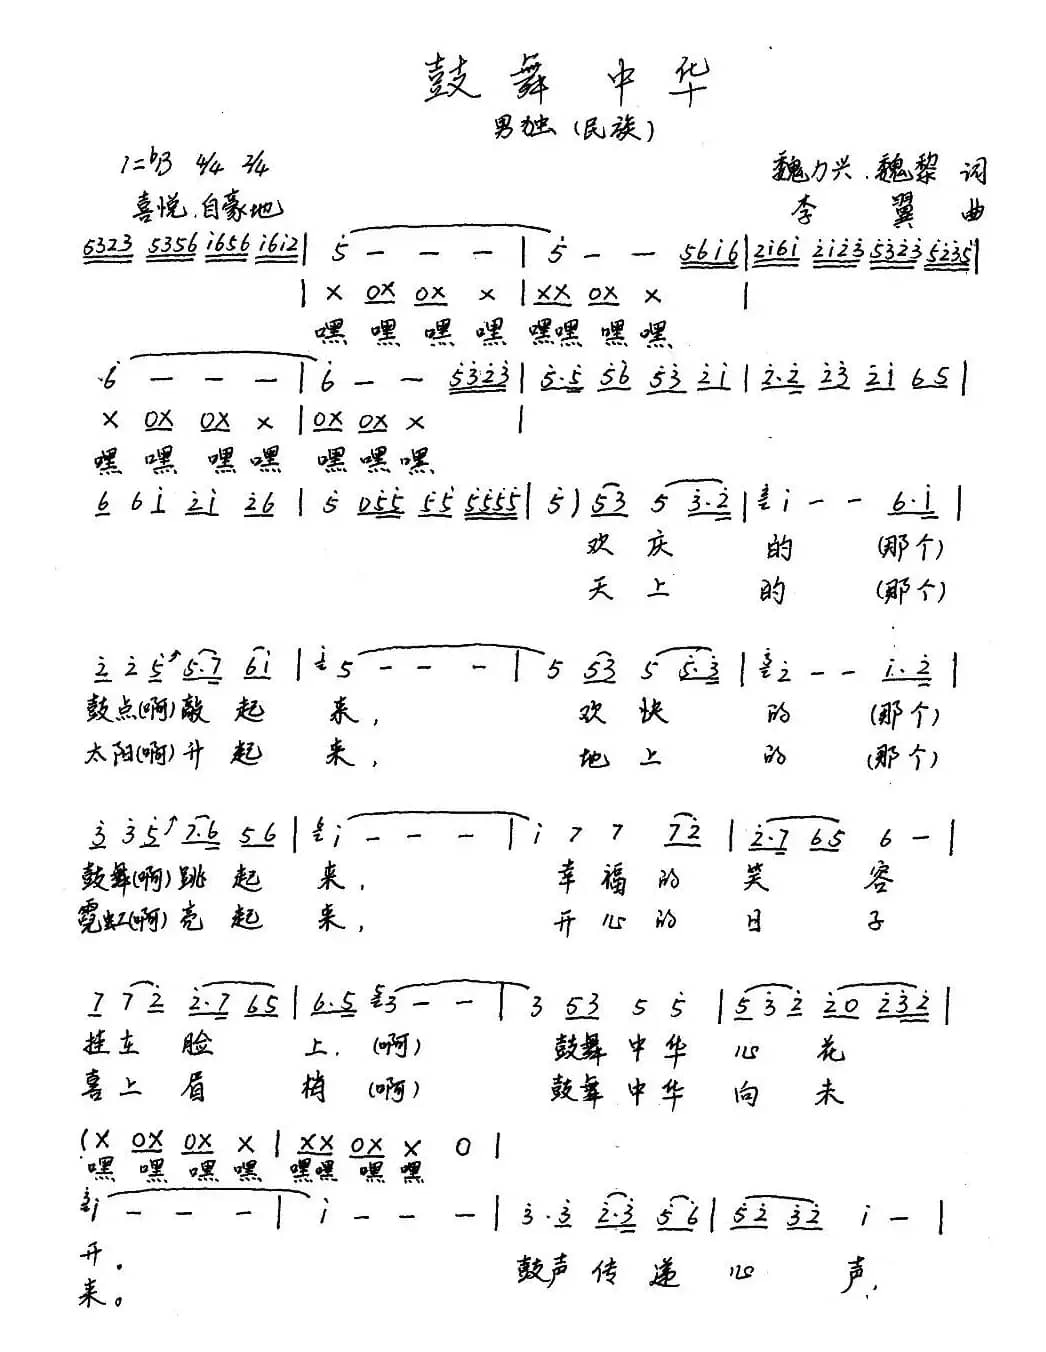 鼓舞中华
男独(民族)
1=♭B 4/4 2/4
魏力兴.魏黎 词
喜悦.自豪地
李翼 曲
5323 5356 i656 i6i2 | 5 - - - | 5 - - 56i6 | 2i6i 2i23 5323 5235 |
| X 0X 0X X | XX 0X X |
嘿 嘿 嘿 嘿 嘿嘿 嘿 嘿
6 - - - | 6 - - 5323 | 5·5 56 53 2i | 2·2 23 2i 65 |
X 0X 0X X | 0X 0X X |
嘿 嘿 嘿 嘿 嘿 嘿 嘿
6 6i 2i 26 | 5 055 55 5555 | 5) 53 5 3·2 | i - - 6·i |
欢 庆 的 (那个)
天 上 的 (那个)
2 2 5 5·7 6i | 5 - - - | 5 53 5 5·3 | 2 - - i·2 |
鼓点(啊)敲 起 来, 欢 快 的 (那个)
太阳(啊)升 起 来, 地 上 的 (那个)
3 35 7·6 56 | i - - - | i 7 7 72 | 2·7 65 6 - |
鼓舞(啊)跳 起 来, 幸 福 的 笑 容
霓虹(啊)亮 起 来, 开 心 的 日 子
7 72 2·7 65 | 6·5 3 - - | 3 53 5 5 | 532 20 232 |
挂在 脸 上. (啊) 鼓舞 中 华 心 花
喜上 眉 梢 (啊) 鼓舞 中 华 向 未
(X 0X 0X X | XX 0X X 0 |
嘿 嘿 嘿 嘿 嘿嘿 嘿 嘿
i - - - | i - - - | 3·3 2·3 56 | 52 32 i - |
开。 鼓声 传 递 心 声,
来。